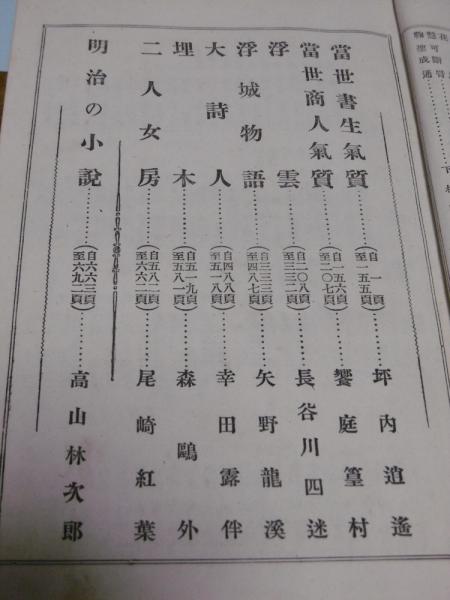 當世書生氣質………(自一頁至一五五頁)………坪内逍遙
當世商人氣質………(自一五六頁至二〇七頁)………饗庭篁村
浮雲………(自二〇八頁至三三二頁)………長谷川四迷
浮城物語………(自三三三頁至四八七頁)………矢野龍溪
大詩人………(自四八八頁至五一八頁)………幸田露伴
埋木………(自五一九頁至五八一頁)………森鷗外
二人女房………(自五八二頁至六六二頁)………尾崎紅葉
明治の小說………(自六六三頁至六九二頁)………高山林次郎